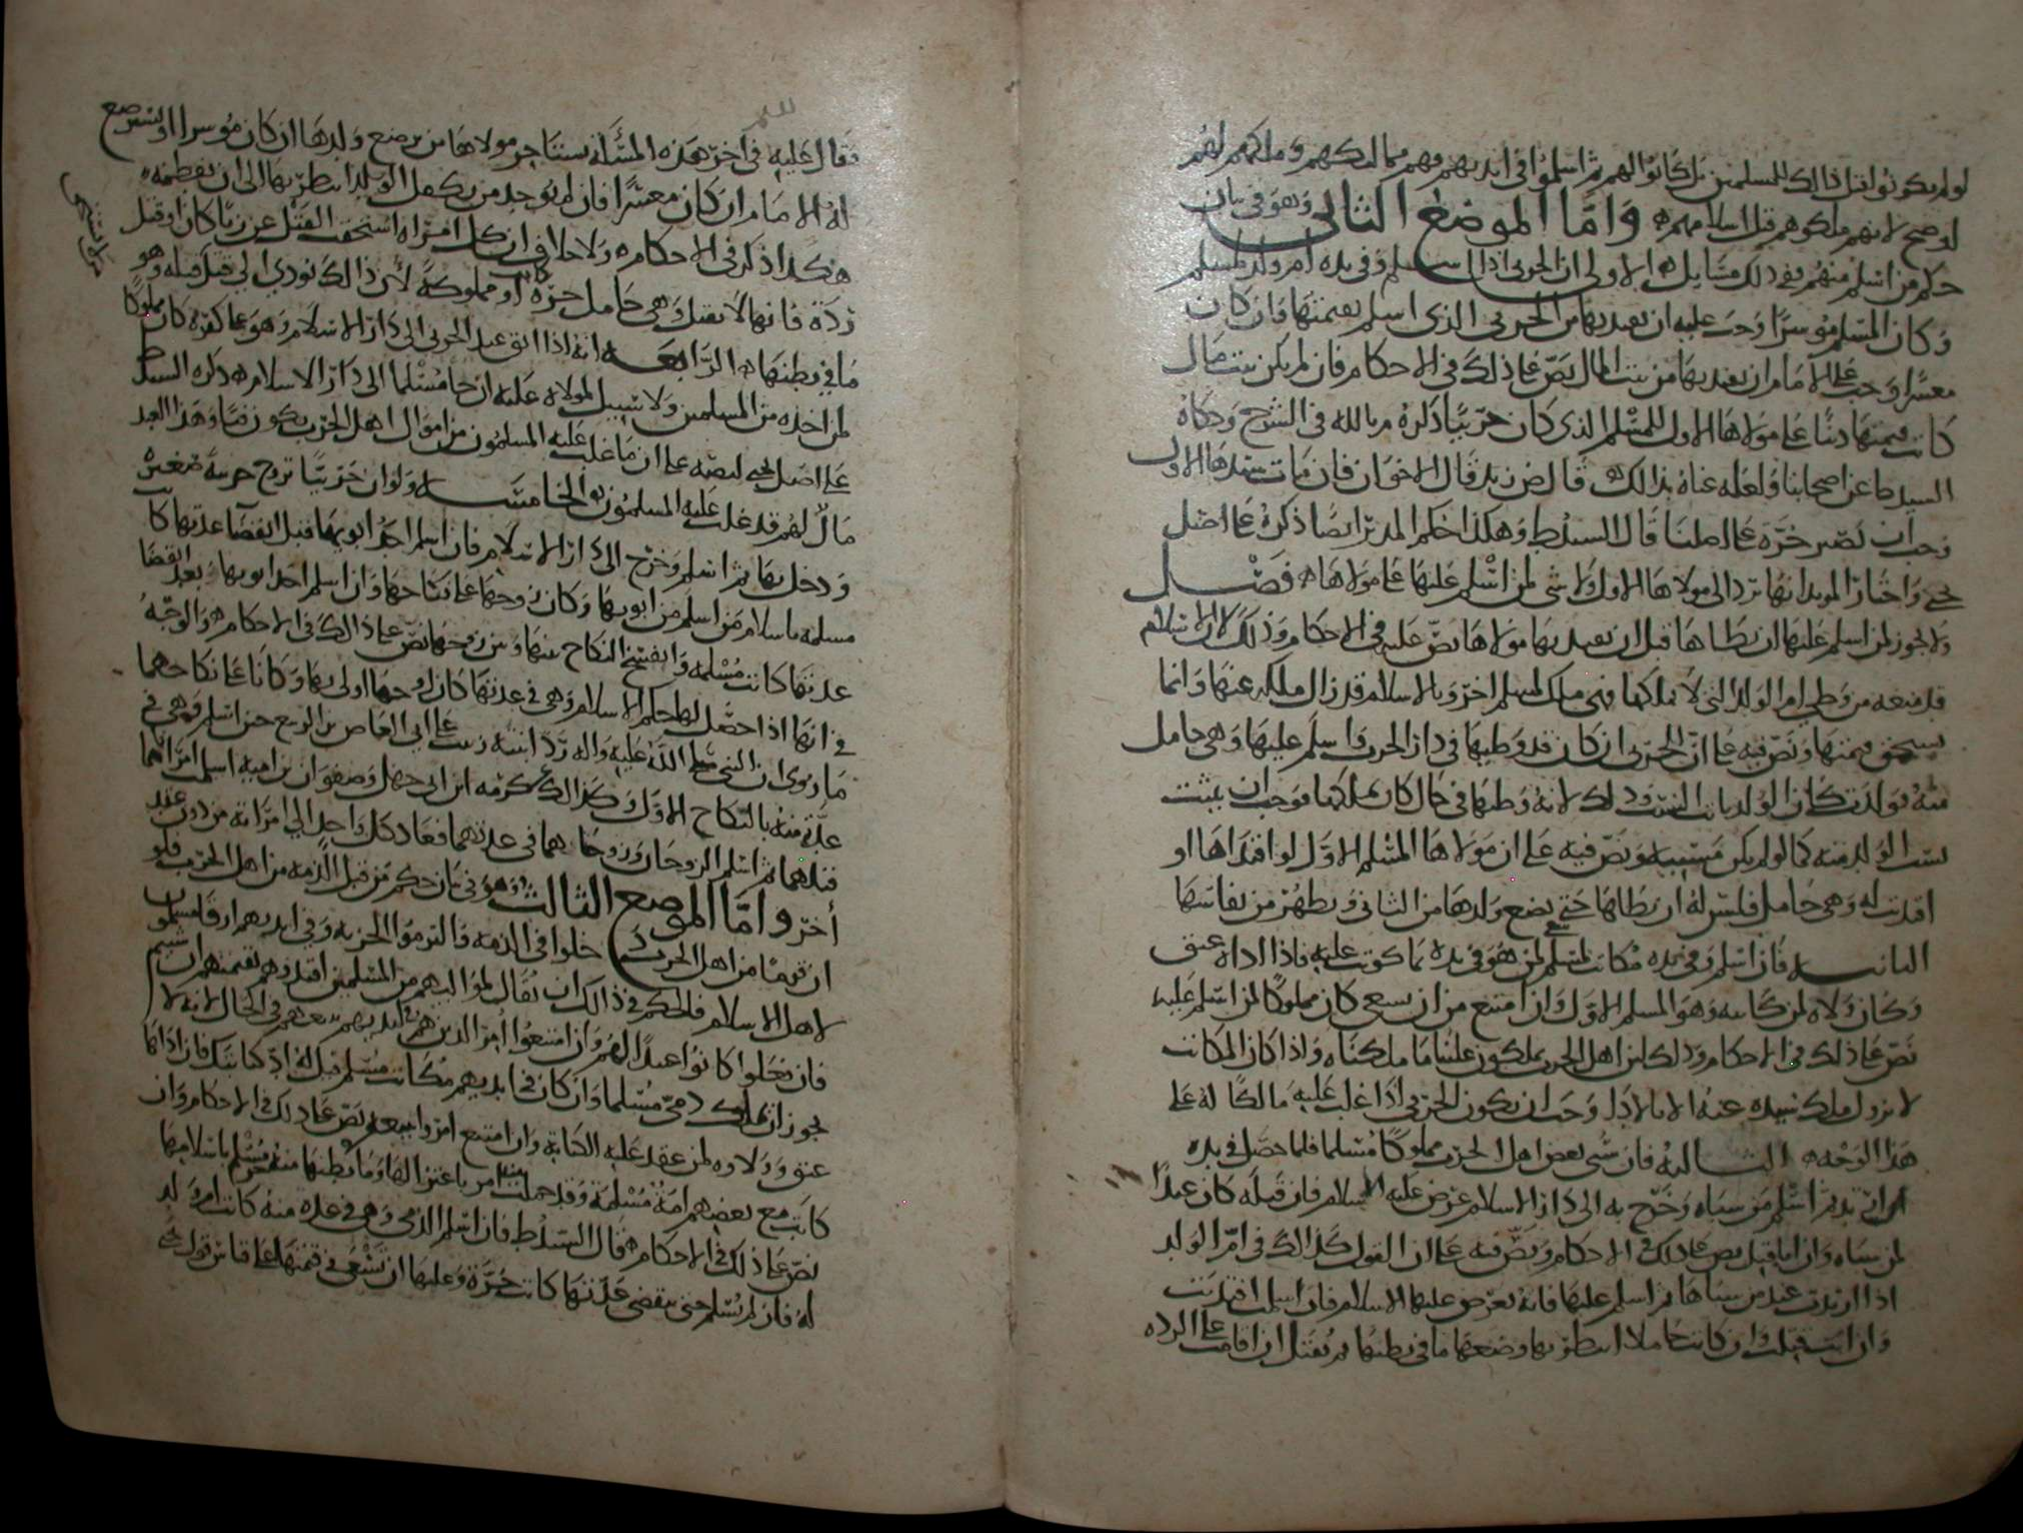 لو لم يكونوا قبل ذالك للمسلمين بل كانوا لهم ثم اسلموا في ايديهم فهم مماليكهم وملكهم لهم
لو صح لانهم ملكوهم قبل اسلامهم واما الموضع الثاني وهو في بيان
حكم من اسلم منهم ففي ذلك مسايل الاولى ان الحربي اذا اسلم وفي يده ام ولد لمسلم
وكان المسلم موسرا وجب عليه ان يفديها من الحربي الذي اسلم بقيمتها فان كان
معسرا وجب على الامام ان يفديها من بيت المال نص على ذلك في الاحكام فان لم يكن بيت مال
كانت قيمتها دينا على مولاها الاول للمسلم الذي كان حربيا ذكره م بالله في الشرح وحكاه
السيد ط عن اصحابنا ولعله عناه بذالك قال ض زيد قال الاخوان فان مات سيدها الاول
وجب ان تصير حرة على اصلنا قال السيد ط وهكذا حكم المدبر ايضا ذكره على اصل
يحيى واختار المويد انها ترد الى مولاها الاول ولا شي لمن اسلم عليها على مولاها فصل
ولا يجوز لمن اسلم عليها ان يطاها قبل ان يفديها مولاها نص عليه في الاحكام وذلك لان الاسلام
قد منعه من وطي ام الولد التي لا يملكها فهي ملك لمسلم اخر وبالاسلام قد زال ملكه عنها وانما
يستحق قيمتها ونص فيه على ان الحربي ان كان قد وطيها في دار الحرب واسلم عليها وهي حامل
منه فولدت كان الولد ثابت النسب وذلك لانه وطيها في حال كان يملكها فوجب ان يثبت
نسب الولد منه كما لو لم يكن مسبيه ونص فيه على ان مولاها المسلم الاول لو افتداها او
افتديت له وهي حامل فليس له ان يطاها حتى تضع ولدها من الثاني وتطهر من نفاسها
الثانيه فان اسلم وفي يده مكاتب لمسلم لمن هو في يده بما كوتب عليه فاذا اداه عتق
وكان ولاه لمن كاتبه وهو المسلم الاول وان امتنع من ان يسعى كان مملوكا لمن اسلم عليه
نص على ذلك في الاحكام وذلك لان اهل الحرب يملكون علينا ما ملكناه واذا كان المكاتب
لا يزول ملك سيده عنه الا بالادا وجب ان يكون الحربي اذا غلب عليه مالكا له على
هذا الوجه الثالثه فان سبى بعض اهل الحرب مملوكا مسلما فلما حصل في يده
ارتد ثم اسلم من سباه وخرج به الى دار الاسلام عرض عليه الاسلام فان قبله كان عبدا
لمن سباه وان ابا قتل نص على ذلك في الاحكام ونص فيه على ان القول كذالك في ام الولد
اذا ارتدت عند من سباها ثم اسلم عليها فانه يعرض عليها الاسلام فان اسلمت افتديت
وان ابت قتلت وان كانت حاملا انتظر بها وضعها ما في بطنها ثم تقتل ان اقامت على الرده
فقال عليه في اخر هذه المسألة يستاجر مولاها من يرضع ولدها ان كان موسرا او يسترضع
له الامام ان كان معسرا فان لم يوجد من يكفل الولد انتظر بها الى ان تفطمه
هكذا ذكر في الاحكام ولا خلاف ان كل امراه استحقت القتل عن زنا كان او قتل
ردة فانها لا تقتل وهي حامل حرة كانت او مملوكة لان ذالك يودي الى قتل قبله وهو
ما في بطنها الرابعه انه اذا ابق عبد الحربي الى دار الاسلام وهو على كفره كان مملوكا
لمن اخذه من المسلمين ولا سبيل لمولاه عليه ان جا مسلما الى دار الاسلام ذكره السيد ط
على اصل يحيى لنصه على ان ما غلب عليه المسلمون من اموال اهل الحرب يكون فيئا وهذا العبد
مال لهم قد غلب عليه المسلمون الخامسه ولو ان حربيا تزوج حربية صغيره
ودخل بها ثم اسلم وخرج الى دار الاسلام فان اسلم احد ابويها قبل انقضا عدتها كانت
مسلمه باسلام من اسلم من ابويها وكان زوجها على نكاحها وان اسلم احد ابويها بعد انقضا
عدتها كانت مسلمه وانفسخ النكاح بينها وبين زوجها نص على ذالك في الاحكام والوجه
في انها اذا حصل لها حكم الاسلام وهي في عدتها كان زوجها اولى بها وكانا على نكاحهما
ما روى ان النبي صلى الله عليه واله رد ابنته زينب على ابي العاص بن الربيع حين اسلم وهي في
عدة منه بالنكاح الاول وكذالك عكرمه ابن ابي جهل وصفوان بن اميه اسلمت امراتاهما
قبلهما ثم اسلم الزوجان وزوجاتاهما في عدتهما فعاد كل واحد الى امراته من دون عقد
اخر واما الموضع الثالث وهو في بيان حكم من قبل الذمه من اهل الحرب فلو
ان قوما من اهل الحرب دخلوا في الذمه فالتزموا الجزيه وفي ايديهم ارقا مسلمون
لاهل الاسلام فالحكم في ذالك ان يقال لمواليهم من المسلمين افتدوهم بقيمتهم ان شيتم
فان فعلوا كانوا عبيدا لهم وان امتنعوا امر الذين هم في ايديهم ببيعهم في الحال لانه لا
يجوز ان يملك ذمي مسلما وان كان في ايديهم مكاتب مسلم قيل له اد كتابتك فان اداها
عتق وولاوه لمن عقد عليه الكتابة وان امتنع امروا ببيعه نص على ذلك في الاحكام وان
كانت مع بعضهم امة مسلمة وقد حملت منه امر باعتزالها وما في بطنها منه مسلم باسلامها
نص على ذلك في الاحكام قال السيد ط فان اسلم الذمي وهي في عده منه كانت ام ولد
له فان لم يسلم حتى تنقضي عدتها كانت حرة وعليها ان تسعى في قيمتها على قياس قول يحيى